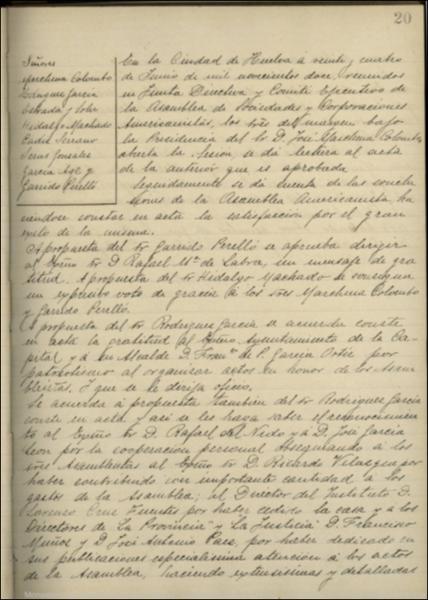 20
Señores
Marchena Colombo
Dominguez Garcia
Estrada y Soler
Hidalgo Machado
Cadiz Serrano
Terus Gonzalez
Garcia Age y
Garrido Perelló
En la Ciudad de Huelva á veinte y cuatro
de Junio de mil novecientos doce, reunidos
en Junta Directiva y Comité ejecutivo de
la Asamblea de Sociedades y Corporaciones
Americanistas, los sres del margen bajo
la Presidencia del sr D. José Marchena Colombo,
abierta la sesion, se dá lectura al acta
de la anterior que es aprobada
Seguidamente se dá cuenta de las conclu
siones de la Asamblea Americanista, ha
ciendose constar en acta la satisfaccion por el gran
exito de la misma.
A propuesta del sr Garrido Perelló se aprueba dirigir
al Exmo sr D. Rafael Mª de Labra, un mensaje de gra
titud. A propuesta del sr Hidalgo Machado se consigna
un expresivo voto de gracia á los sres Marchena Colombo
y Garrido Perelló.
A propuesta del sr Rodriguez Garcia se acuerda conste
en acta la gratitud al Exmo Ayuntamiento de la Ca-
pital y á su Alcalde D. Franco de P. Garcia Ortiz por
patrocinio al organizar actos en honor de los asam
bleistas, y que se le dirija oficio.
Se acuerda á propuesta tambien del sr Rodriguez Garcia
conste en acta y asi se les haga saber el reconocimien
to al Exmo sr D. Rafael del Nido y á D. José Garcia
Leon por la cooperacion personal obsequiando á los
sres Asambleistas al Exmo sr D. Ricardo Velazquez por
haber contribuido con importante cantidad á los
gastos de la Asamblea; al Director del Instituto D.
Lorenzo Cruz Fuentes por haber cedido la casa y á los
Directores de La Provincia y La Justicia D. Francisco
Muñoz y D. José Antonio Paez, por haber dedicado en
sus publicaciones especialisima atencion á los actos
de la Asamblea, haciendo extensisimas y detalladas